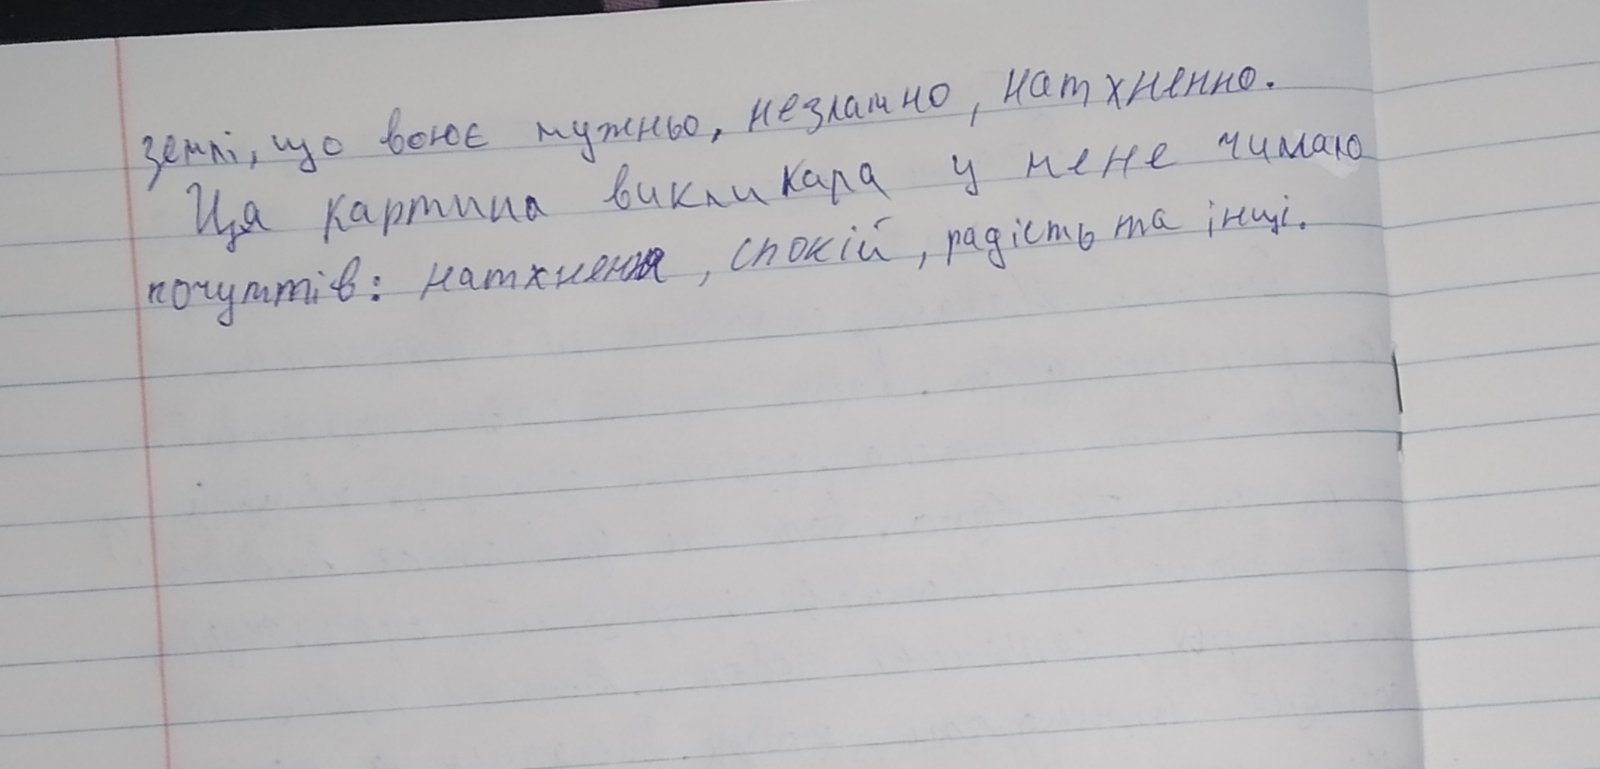 землі, що воює мужньо, незламно, натхненно.
Ця картина викликала у мене чимало
почуттів: натхнення, спокій, радість та інші.